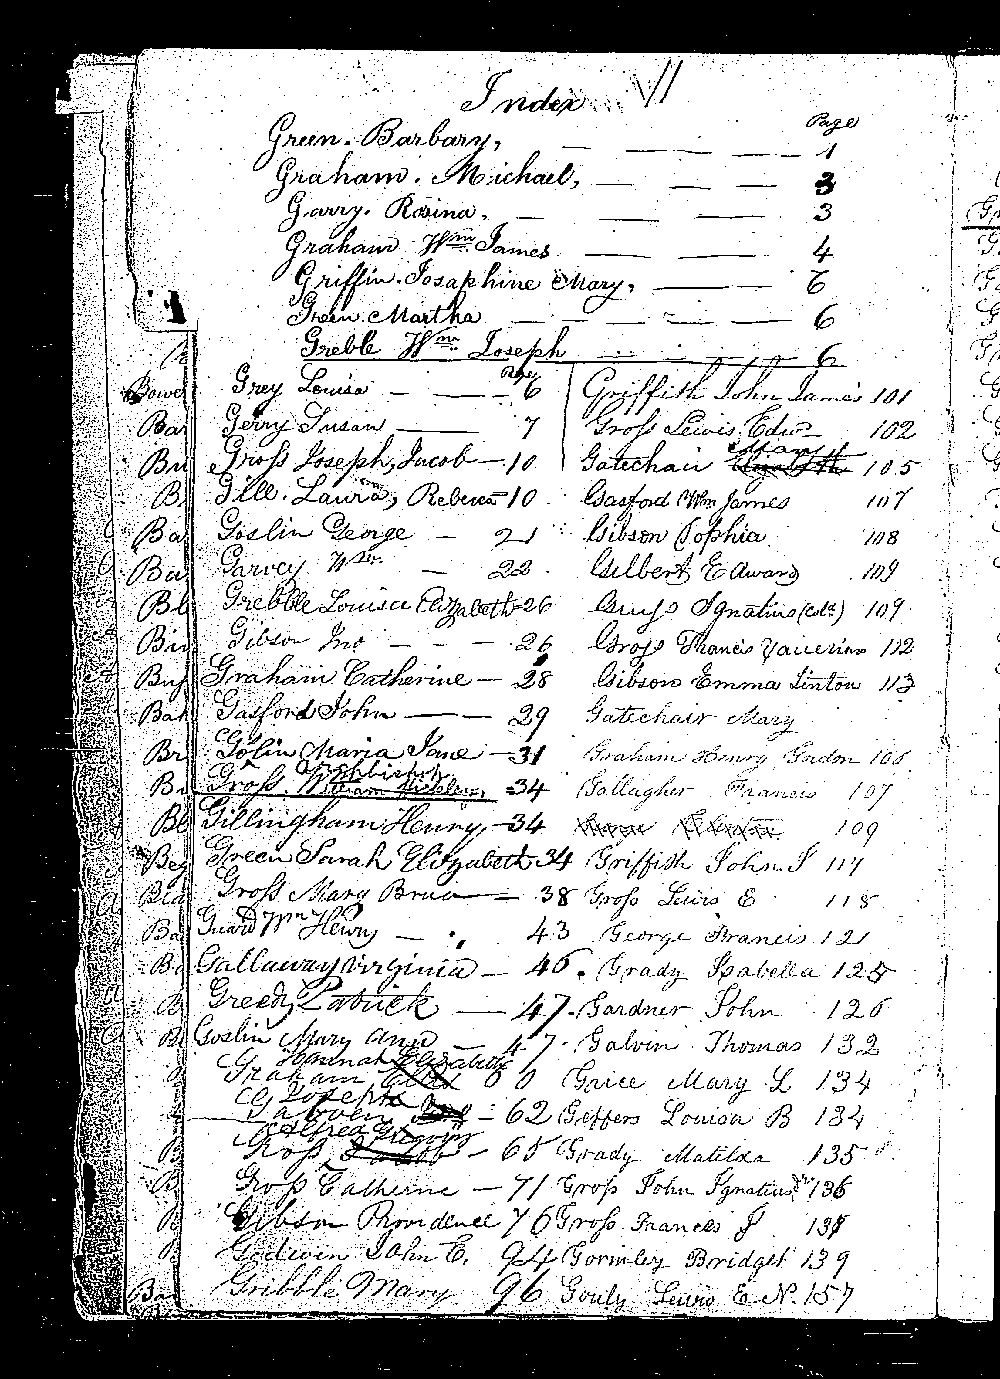 Index
Page
Green. Barbary, 1
Graham. Michael, 3
Garry. Rosina, 3
Graham Wm James 4
Griffin. Josaphine Mary, 6
Green Martha 6
Greble Wm Joseph 6
Page
Grey Louisa 6
Gerry Susan 7
Gross Joseph, Jacob 10
Gill. Laura, Rebecca 10
Goslin George 21
Garvey Wm 22
Grebble Louisa Elizabeth 26
Gibson Jno 26
Graham Catherine 28
Gasford John 29
Golin Maria Jane 31
Gross 34
Gillingham Henry, 34
Green Sarah Elizabeth 34
Gross Mary 38
Guard Wm Henry 43
Gallaway Virginia 46
Greedy Patrick 47
Goslin Mary Ann 47
Hannah Elizabeth
Graham
Joseph
62
Gross 65
Gross Catherine 71
Gibson Providence 76
Godwin John E. 94
Gribble Mary 96
Griffith John James 101
Gross Lewis Edwd 102
Gatechair 105
Gasford Wm James 107
Gibson Sophia 108
Gilbert Edward 109
Ignatius (Cold) 109
Gross Francis 112
Gibson Emma Linton 113
Gatechair Mary
Graham Henry Gordon 106
Gallagher Francis 107
109
Griffith John J 117
Gross Lewis E 118
George Francis 121
Grady Isabella 125
Gardner John 126
Galvin Thomas 132
Grice Mary L 134
Geffers Louisa B 134
Grady Matilda 135
Gross John Ignatius 136
Gross Frances J 138
Gormley Bridget 139
Gouly Lewis E N. 157
Bowe
Bar
Bru
B
Ba
Ba
Bl
Bu
Bah
Br
Bl
Bey
Bla
Ba